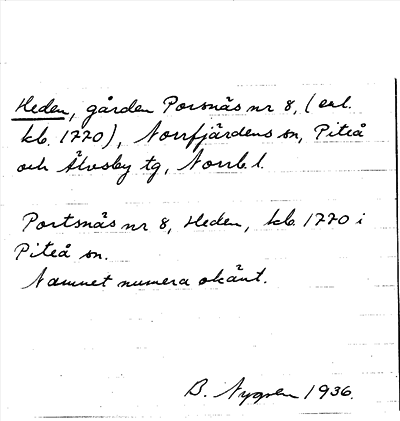 Heden, gården Porsnäs nr 8, (enl.
kb. 1770), Norrfjärdens sn, Piteå
och Älvsby tg, Norrb. l.
Portsnäs nr 8, Heden, kb. 1770 i
Piteå sn.
Namnet numera okänt.
B. Nygren 1936.